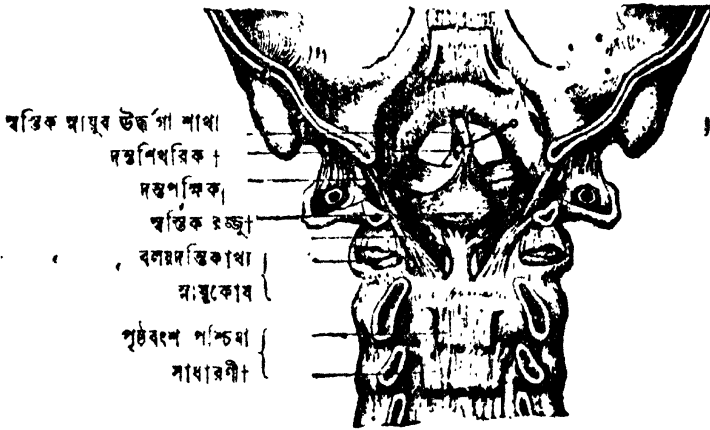 স্বস্তিক স্নায়ুর ঊর্দ্ধগা শাখা
দন্তশিখরিক †
দন্তপক্ষিক†
স্বস্তিক রজ্জু†
বলয়দন্তিকাখ্যা
স্নায়ুকোষ
পৃষ্ঠবংশ পশ্চিমা
সাধারণী†